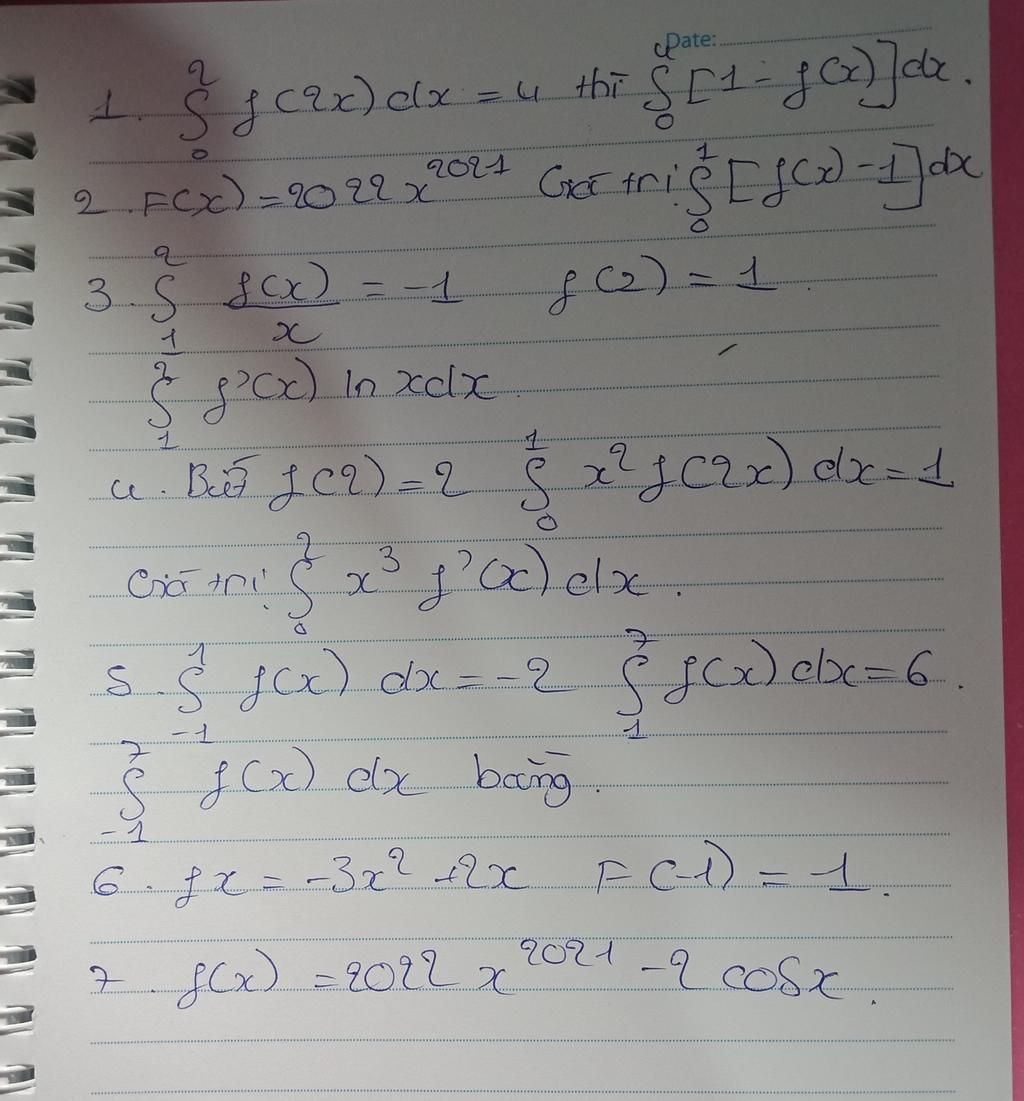 Date:
1. ∫₀² f(2x) dx = 4 thì ∫₀⁴ [1 - f(x)] dx.
2. F(x) = 2022 x²⁰²¹ Giá trị ∫₀¹ [f(x) - 1] dx
3. ∫₁² f(x)/x = -1 f(2) = 1.
∫₁² f'(x) ln x dx.
4. Biết f(2) = 2 ∫₀¹ x² f(2x) dx = 1
Giá trị ∫₀² x³ f'(x) dx.
5. ∫₋₁¹ f(x) dx = -2 ∫₁⁷ f(x) dx = 6.
∫₋₁⁷ f(x) dx bằng.
6. fx = -3x² + 2x F(-1) = 1.
7. f(x) = 2022 x²⁰²¹ - 2 cosx.